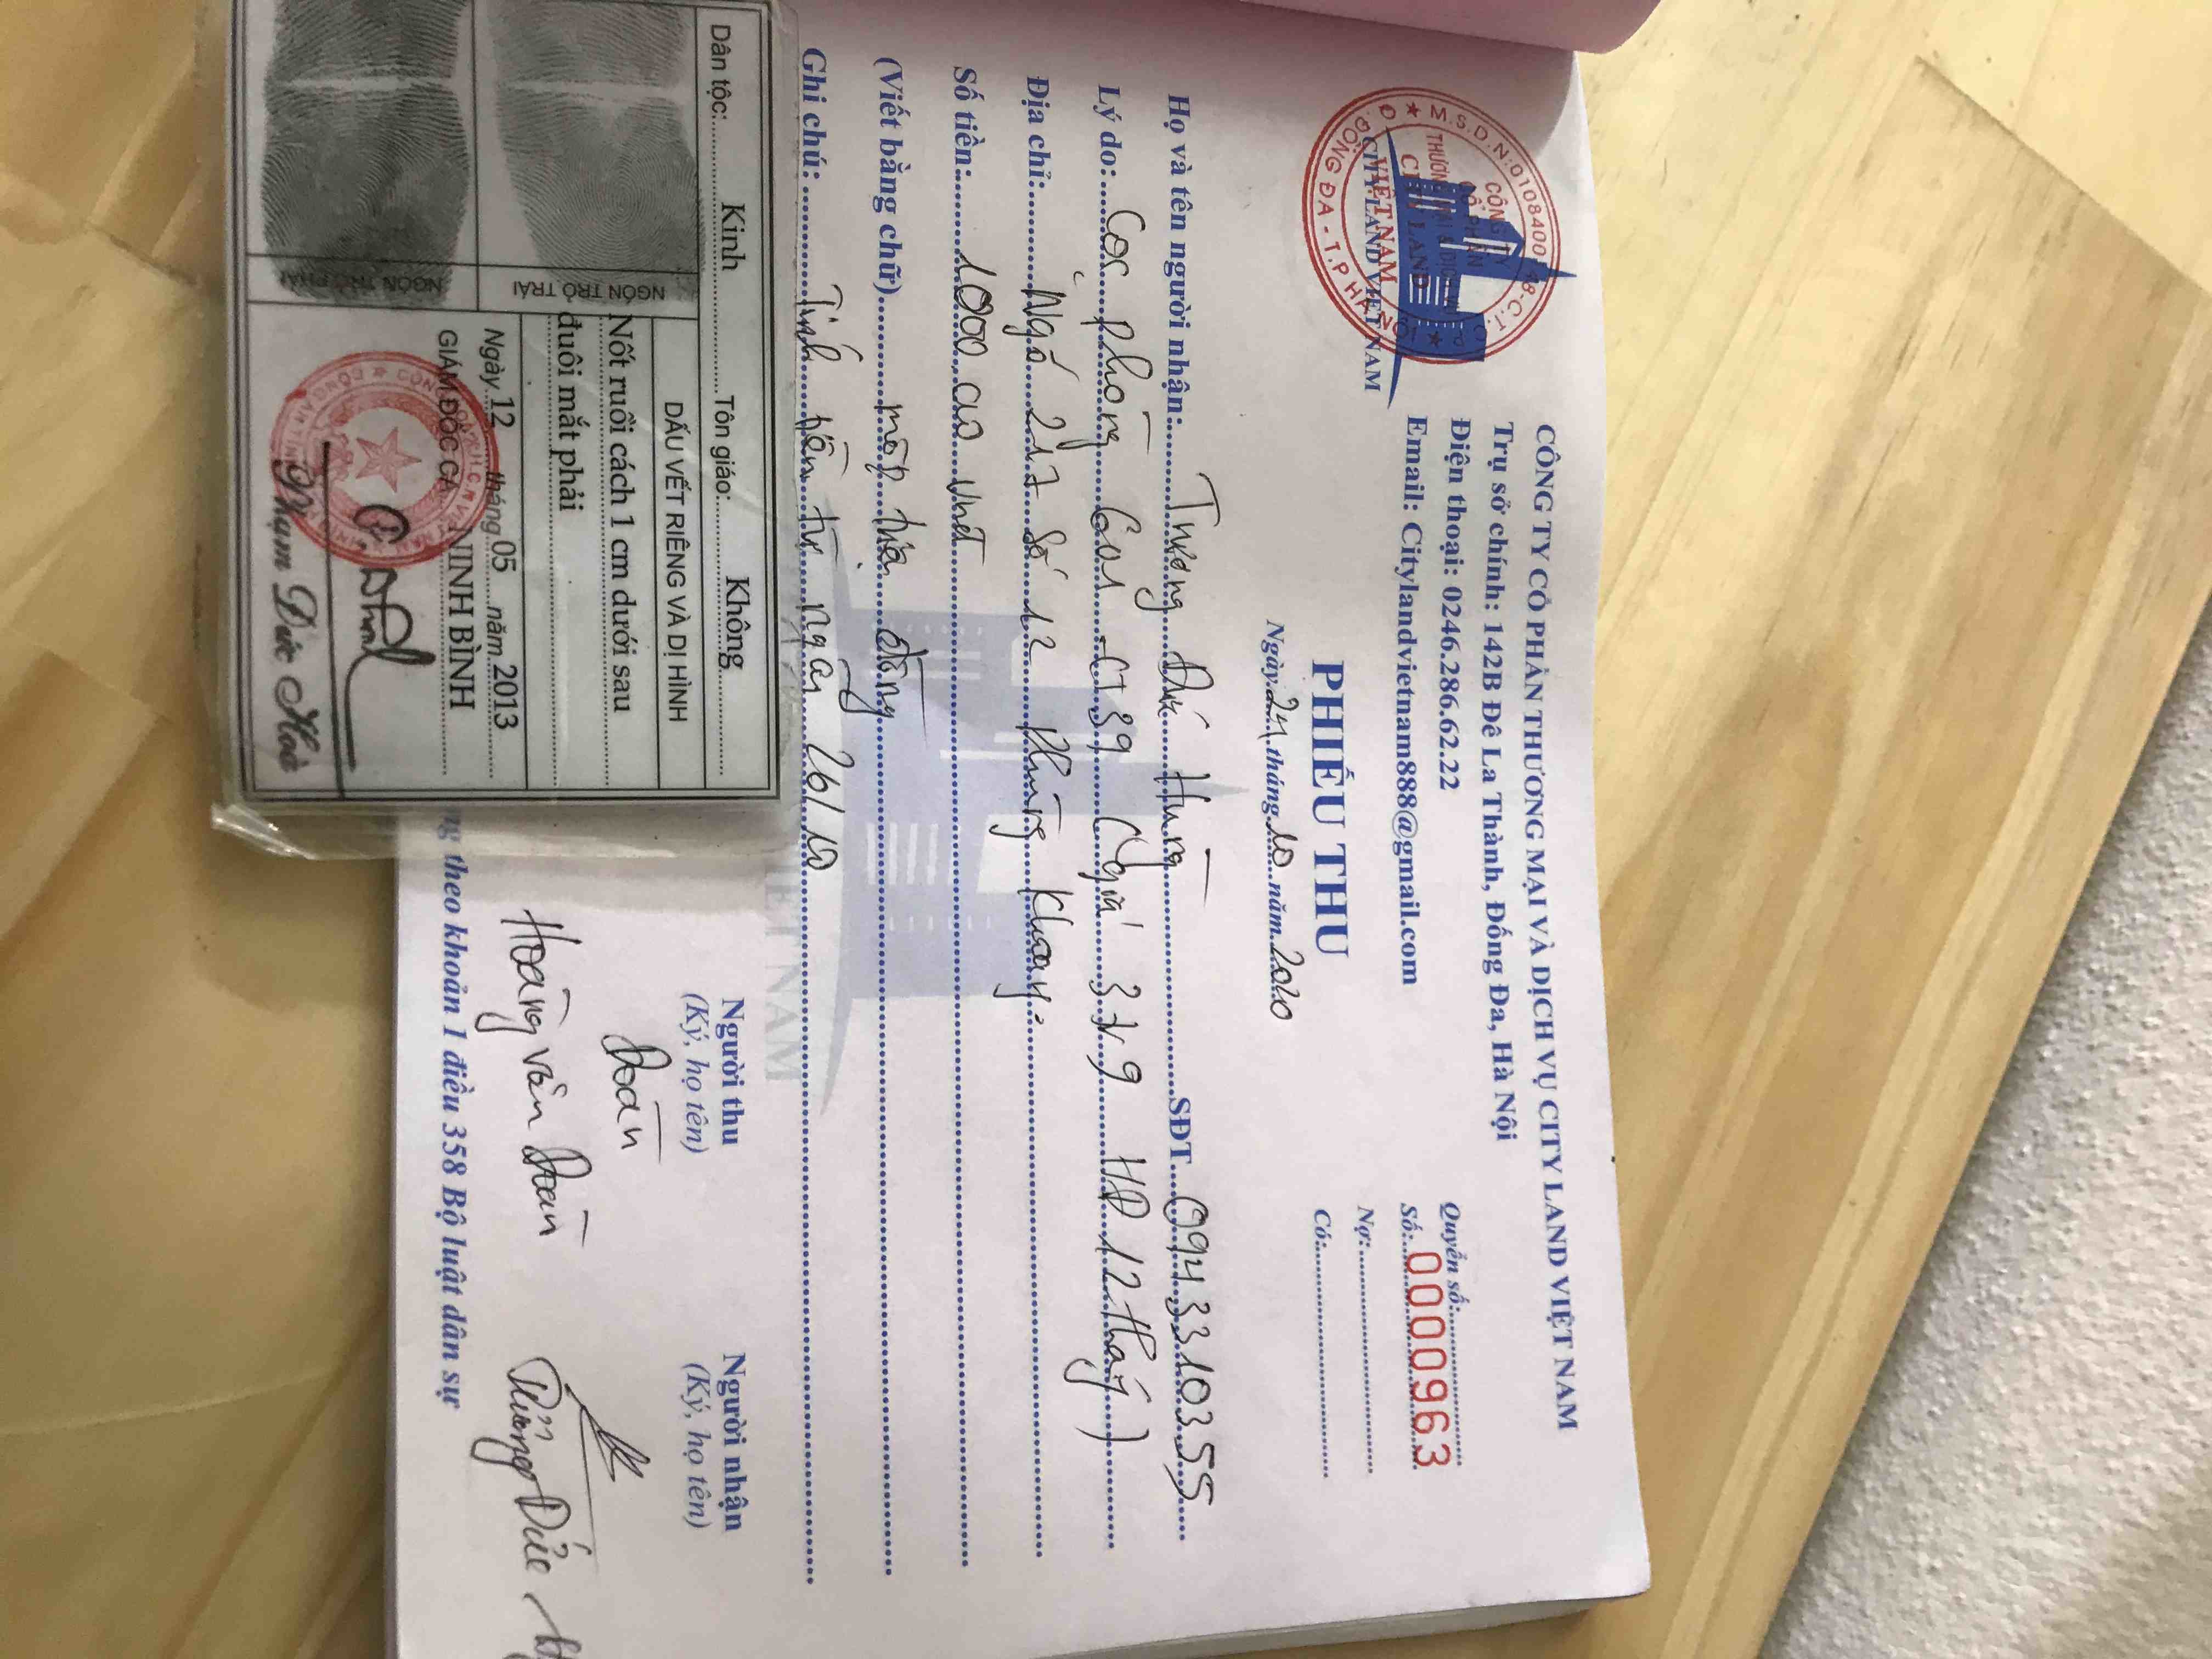 CÔNG TY CỔ PHẦN THƯƠNG MẠI VÀ DỊCH VỤ CITY LAND VIỆT NAM
Trụ sở chính: 142B Đê La Thành, Đống Đa, Hà Nội
Điện thoại: 0246.286.62.22
Email: Citylandvietnam888@gmail.com
M.S.D.N:0108400
CÔNG TY
CỔ PHẦN
CITY LAND
VIỆT NAM
Q. ĐỐNG ĐA - T.P HÀ NỘI
CITY LAND VIET NAM
Quyển số:
Số: 0000963
Nợ:
Có:
PHIẾU THU
Ngày 24 tháng 10 năm 2020
Họ và tên người nhận: Trương Đức Hưng SĐT 0943310355
Lý do: Cọc phòng (Giá 3tr9 HĐ 12 tháng)
Địa chỉ: Ngõ 217 Số 12 Phùng Khoang
Số tiền: 1000 000 vnđ
(Viết bằng chữ) một triệu đồng
Ghi chú: Tính tiền từ ngày 26/10
VIET NAM
Người thu
(Ký, họ tên)
Đoàn
Hoàng văn Đoàn
Người nhận
(Ký, họ tên)
Trương Đức
theo khoản 1 điều 358 Bộ luật dân sự
Dân tộc: Kinh Tôn giáo: Không
NGÓN TRỎ TRÁI
NGÓN TRỎ PHẢI
DẤU VẾT RIÊNG VÀ DỊ HÌNH
Nốt ruồi cách 1 cm dưới sau
đuôi mắt phải
Ngày 12 tháng 05 năm 2013
GIÁM ĐỐC CA NINH BÌNH
Phạm Đức Hoà